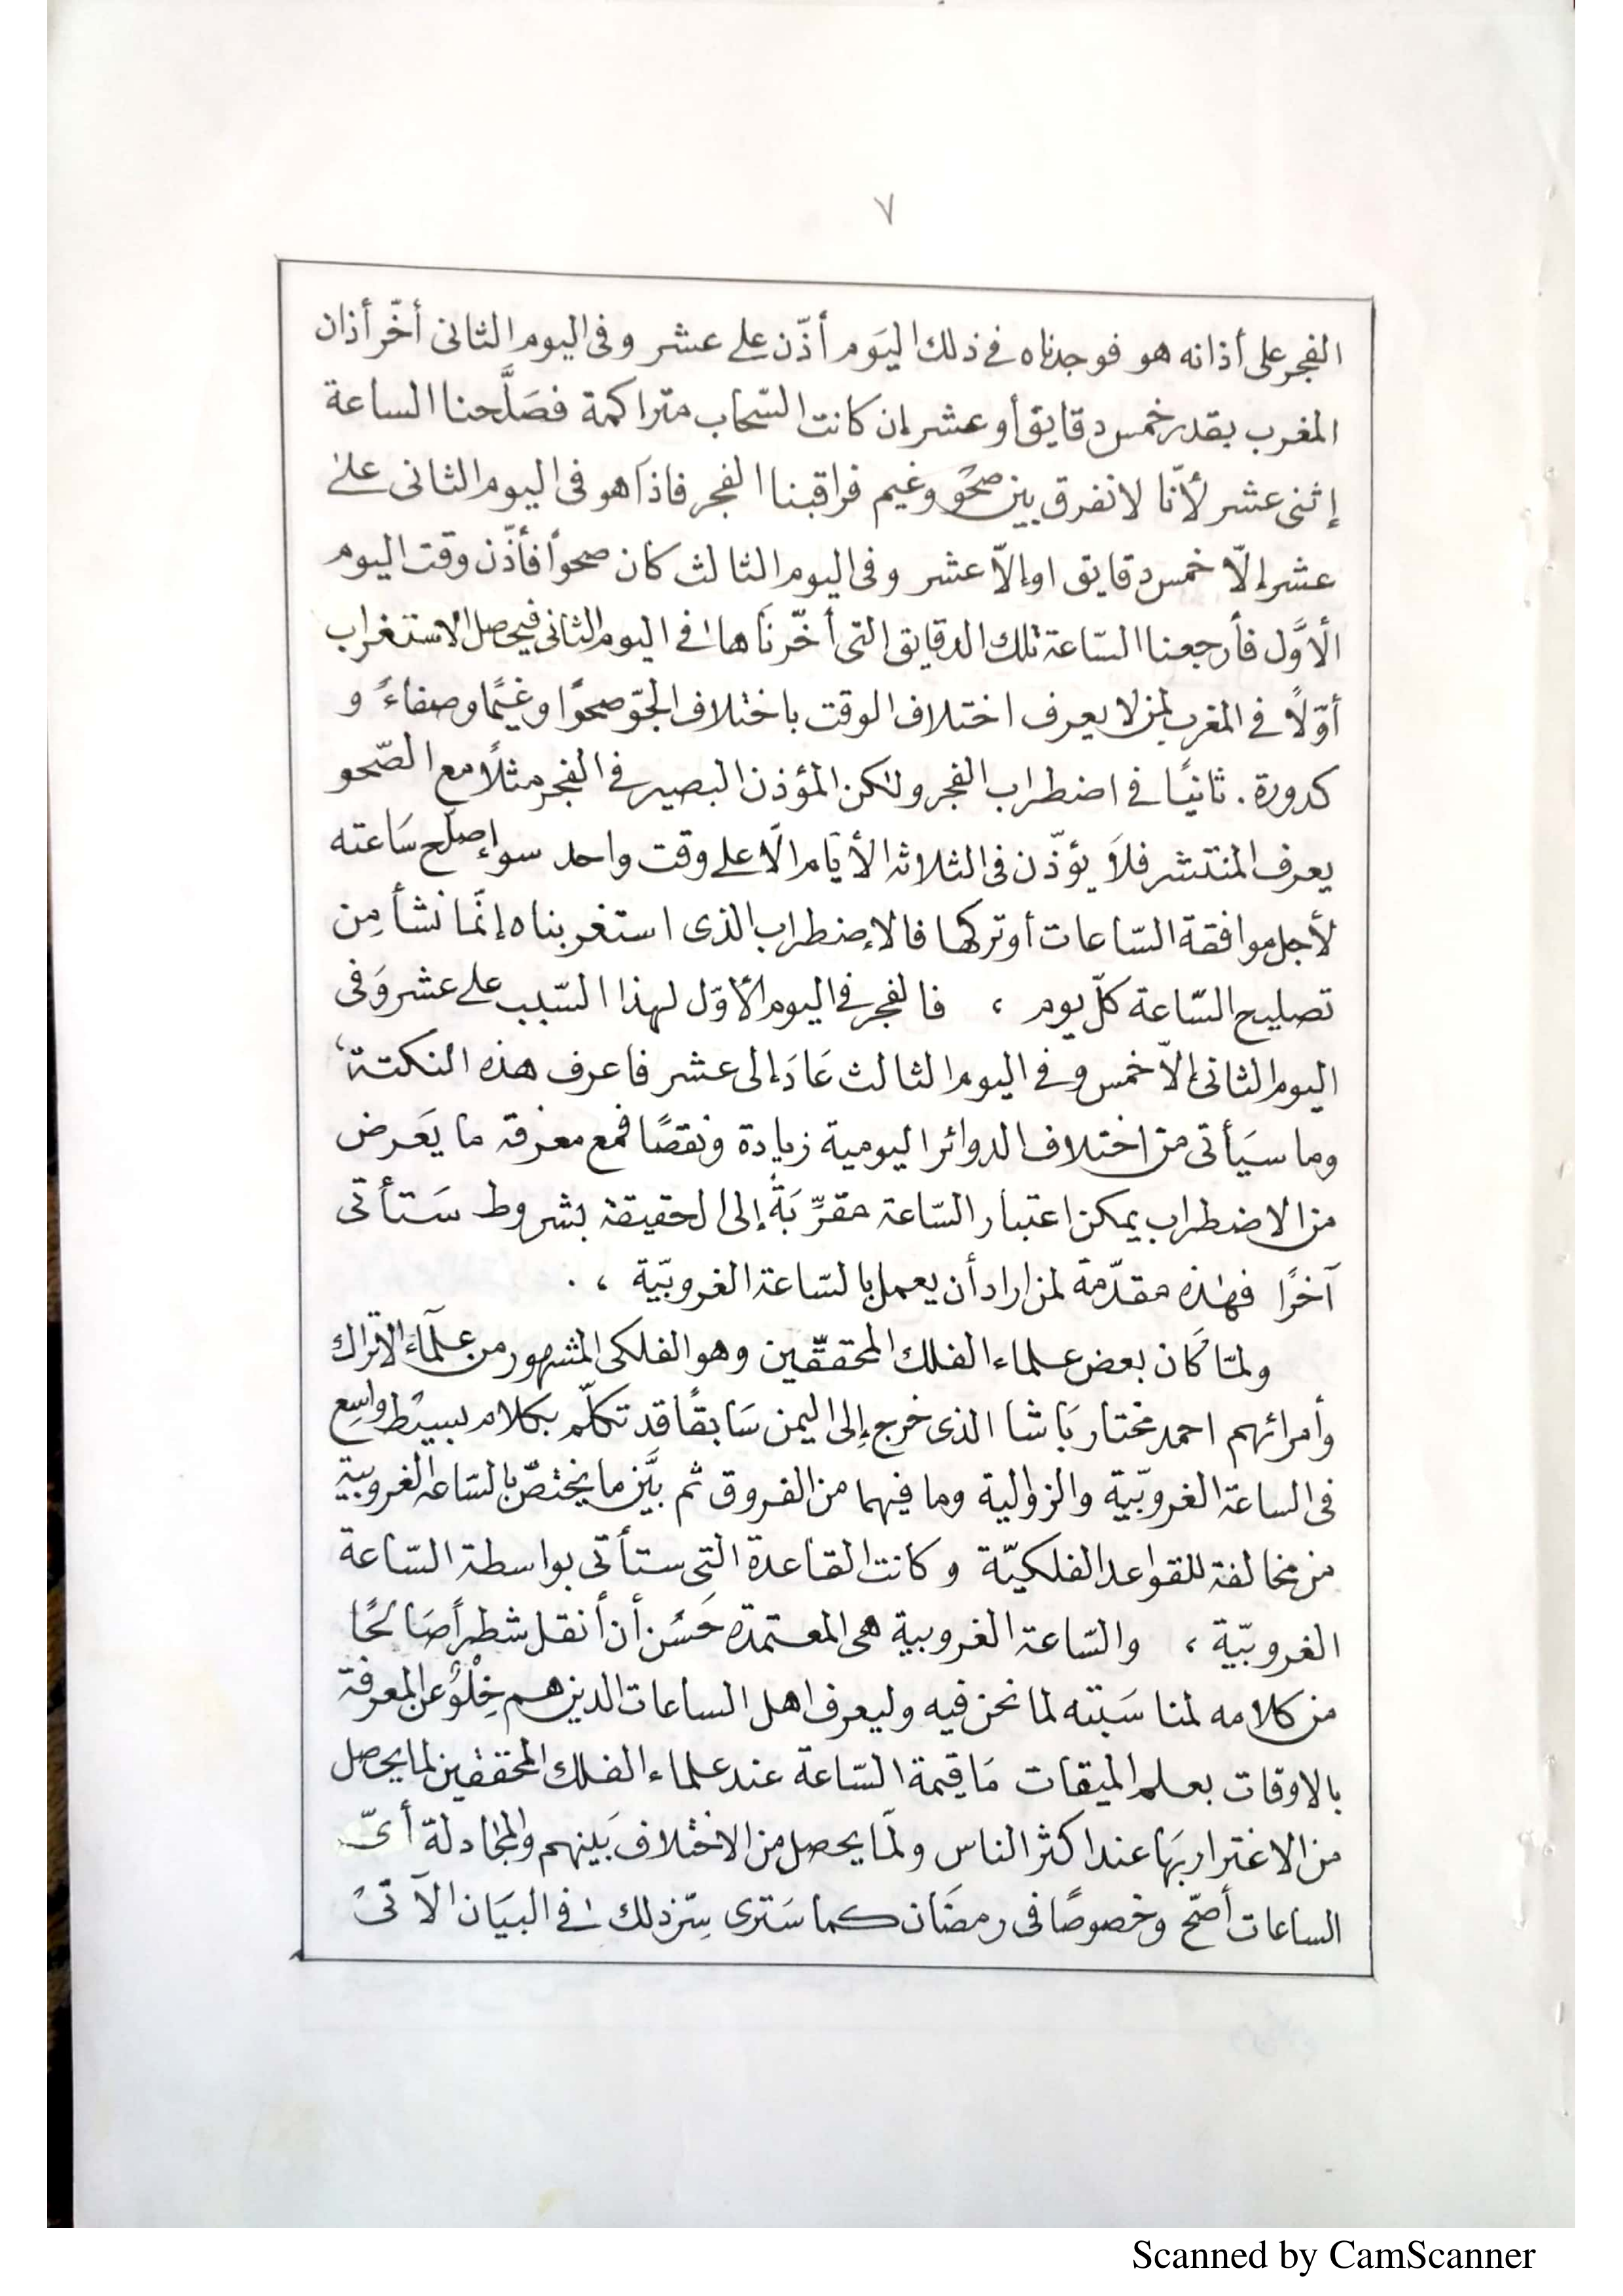 ٧
الفجر على أذانه هو فوجدناه فى ذلك اليَوم أذّن على عشر وفى اليوم الثانى أخّر أذان
المغرب بقدر خمس دقايق أو عشر إن كانت السّحاب متراكمة فصَلَّحنا الساعة
إثنى عشر لأنّا لا نفرق بين صحُوٍ وغيم فراقبنا الفجر فاذآ هو فى اليوم الثانى على
عشر إلّا خمس دقايق او إلّا عشر وفى اليوم الثالث كان صحواً فأذّن وقت اليوم
الأوَّل فأرجعنا السّاعة تلك الدقايق التى أخّرنَاها فى اليوم الثانى فيحصل الاستغراب
أوّلاً فى المغرب لمن لا يعرف اختلاف الوقت باختلاف الجوّ صحوًا وغيمًا وصفاءً و
كدورة . ثانيًا فى اضطراب الفجر ولكن المؤذن البصير فى الفجر مثلاً مع الصّحو
يعرف المنتشر فلاَ يؤذّن فى الثلاثة الأيَام الّا على وقت واحد سواء صلّح سَاعته
لأجل موافقة السّاعات أو تركها فالإضطراب الذى استغربناه إنّما نشأ مِن
تصليح السّاعة كلّ يوم ، فالفجر فى اليوم الأوّل لهذا السّبب على عشر وَفى
اليوم الثانى إلاّ خمس وفى اليوم الثالث عَادَ إلى عشر فاعرف هذه النكتة ،
وما سيَأتى من اختلاف الدوائر اليومية زيادة ونقصًا فمع معرفة ما يَعَرض
من الاضطراب يمكن اعتبار السّاعة مقرِّبَةً إلى الحقيقة بشروط سَتأتى
آخرًا فهٰذه مقدّمة لمن اراد أن يعمل بالسّاعة الغروبيّة ، .
ولمّا كَان بعض علماء الفلك المحققّين وهو الفلكى المشهور من علمآء الاتراك
وأمرائهم احمد مختار بَاشا الذى خرج إلى اليمن سَابقًا قد تكلّم بكلام بسيْط واسِع
فى الساعة الغروبيّة والزوالية وما فيهما من الفروق ثم بيَّن ما يختصّ بالسّاعه الغروبية
من مخالفة للقواعد الفلكيّة وكانت القاعدة التى ستأتى بواسطة السّاعة
الغروبيّة ، والسّاعة الغروبية هى المعتمدة حَسُن أن أنقل شطراً صَالحًا
من كلامه لمناسَبته لما نحن فيه وليعرف اهل الساعات الذين هم خِلْوٌ عن المعرفة
بالاوقات بعلم الميقات مَا قيمة السّاعة عند علماء الفلك المحققين لما يحصل
من الاغترار بَها عند اكثر الناس ولمَا يحصل من الاختلاف بَينهم والمجَادلة أىّ
الساعات أصّح وخصوصًا فى رمضَان كما سَترى سِرّ ذلك فى البيَان الآتى
Scanned by CamScanner